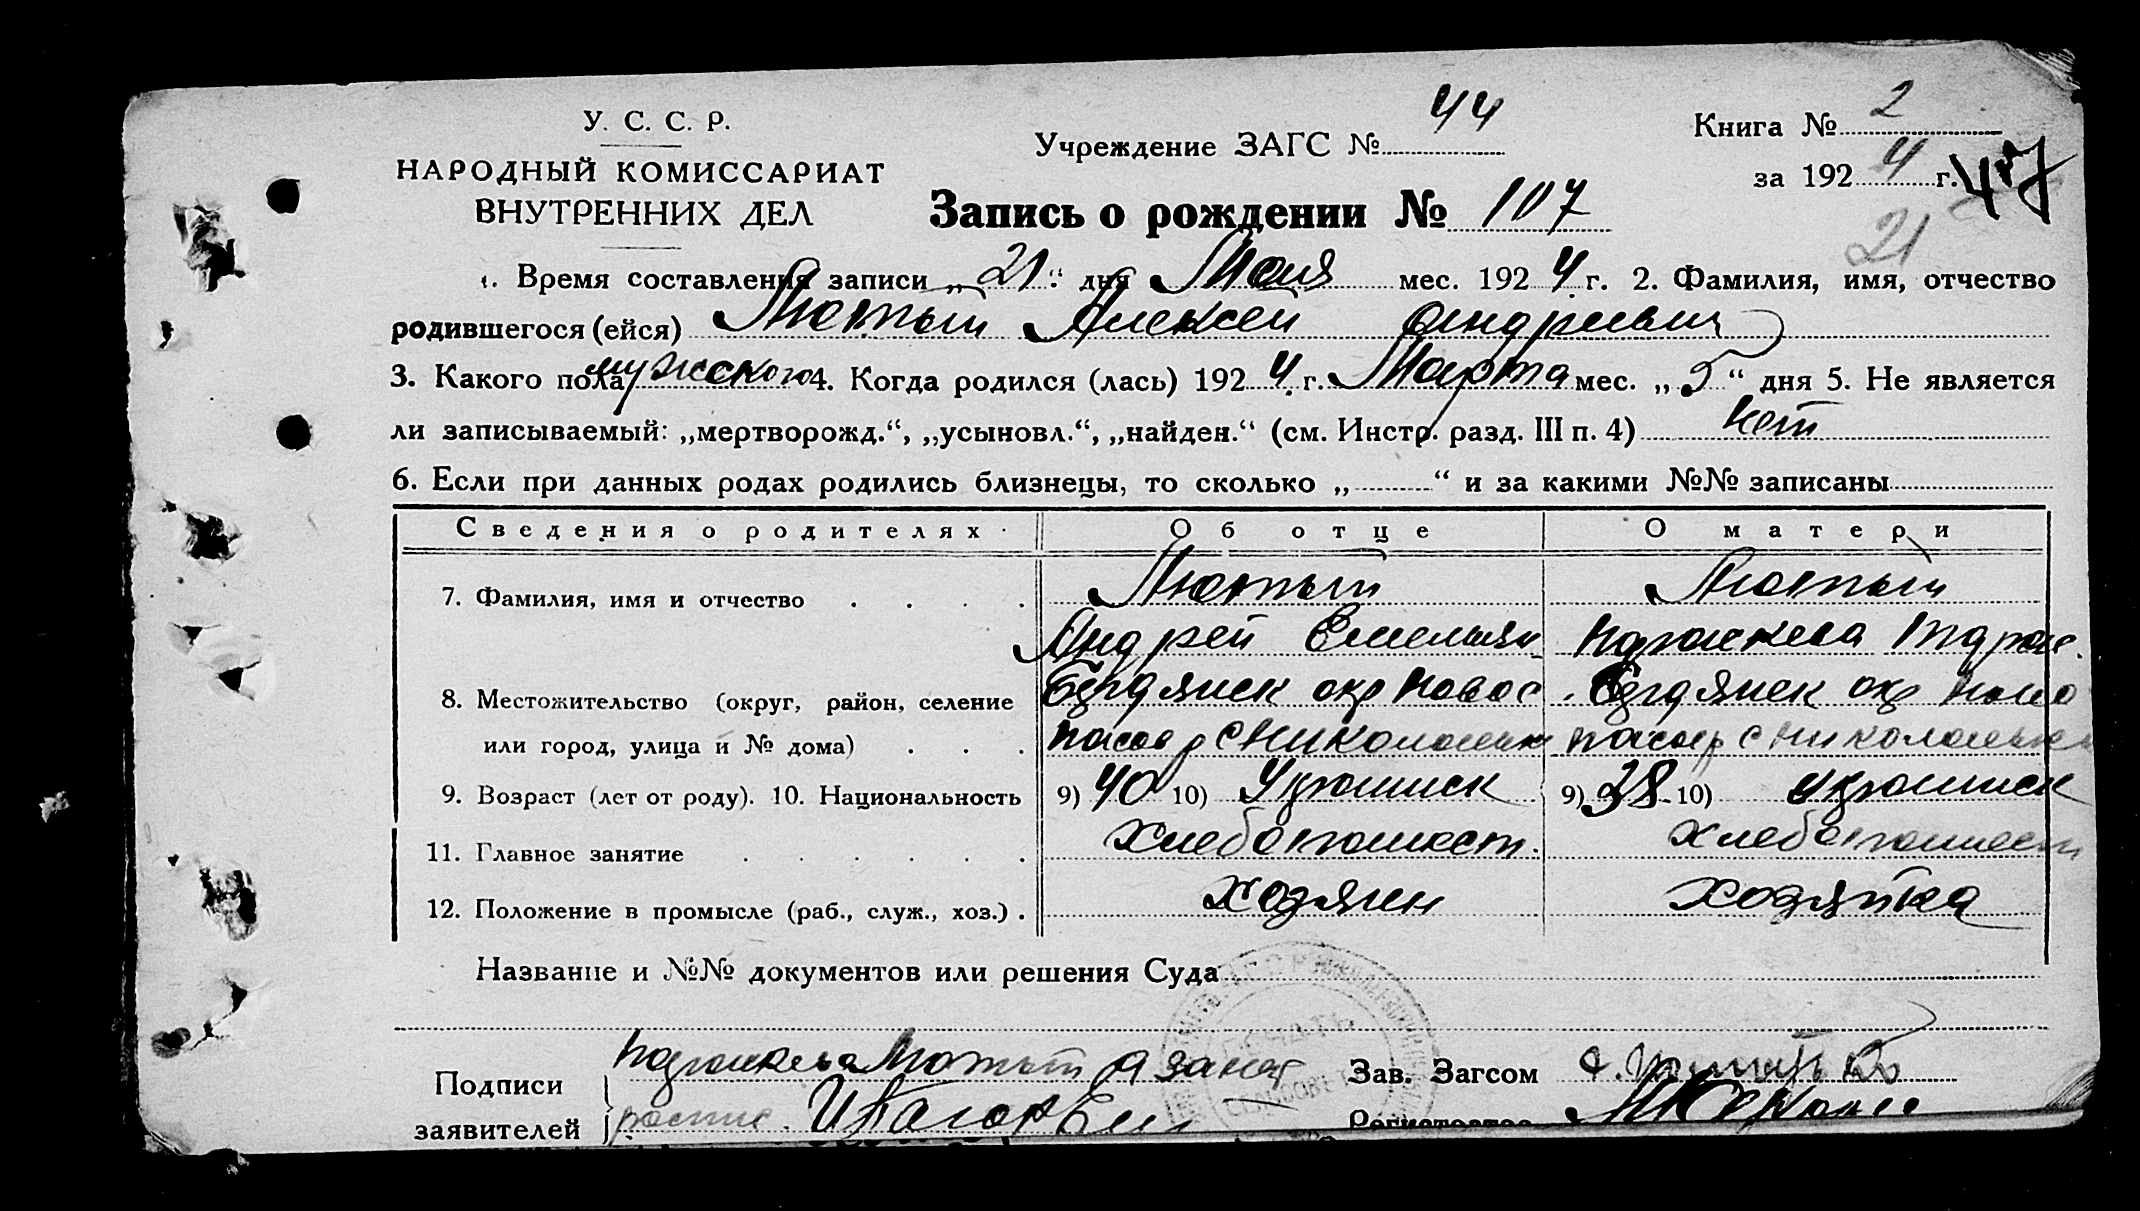 У. С. С. Р.
НАРОДНЫЙ КОМИССАРИАТ
ВНУТРЕННИХ ДЕЛ
Учреждение ЗАГС № 44
Книга № 2
за 1924 г.
47
Запись о рождении № 107
21
1. Время составления записи „21“ дня Мая мес. 1924 г. 2. Фамилия, имя, отчество
родившегося (ейся) Лютый Алексей Андреевич
3. Какого пола мужского 4. Когда родился (лась) 1924 г. Марта мес. „5“ дня 5. Не является
ли записываемый: „мертворожд.“, „усыновл.“, „найден.“ (см. Инстр. разд. III п. 4) нет
6. Если при данных родах родились близнецы, то сколько „ “ и за какими №№ записаны
Сведения о родителях Об отце О матери
7. Фамилия, имя и отчество Лютый Лютый
Андрей Емельян
8. Местожительство (округ, район, селение Бердянск окр Бердянск окр
или город, улица и № дома) с Николаевк с Николаевк
9. Возраст (лет от роду). 10. Национальность 9) 40 10) Украинск 9) 38 10) Украинск
11. Главное занятие Хлебопашест. Хлебопашест
12. Положение в промысле (раб., служ., хоз.) Хозяин Хозяйка
Название и №№ документов или решения Суда
Подписи Лютый а за неё Зав. Загсом
заявителей роспис. Регистратор